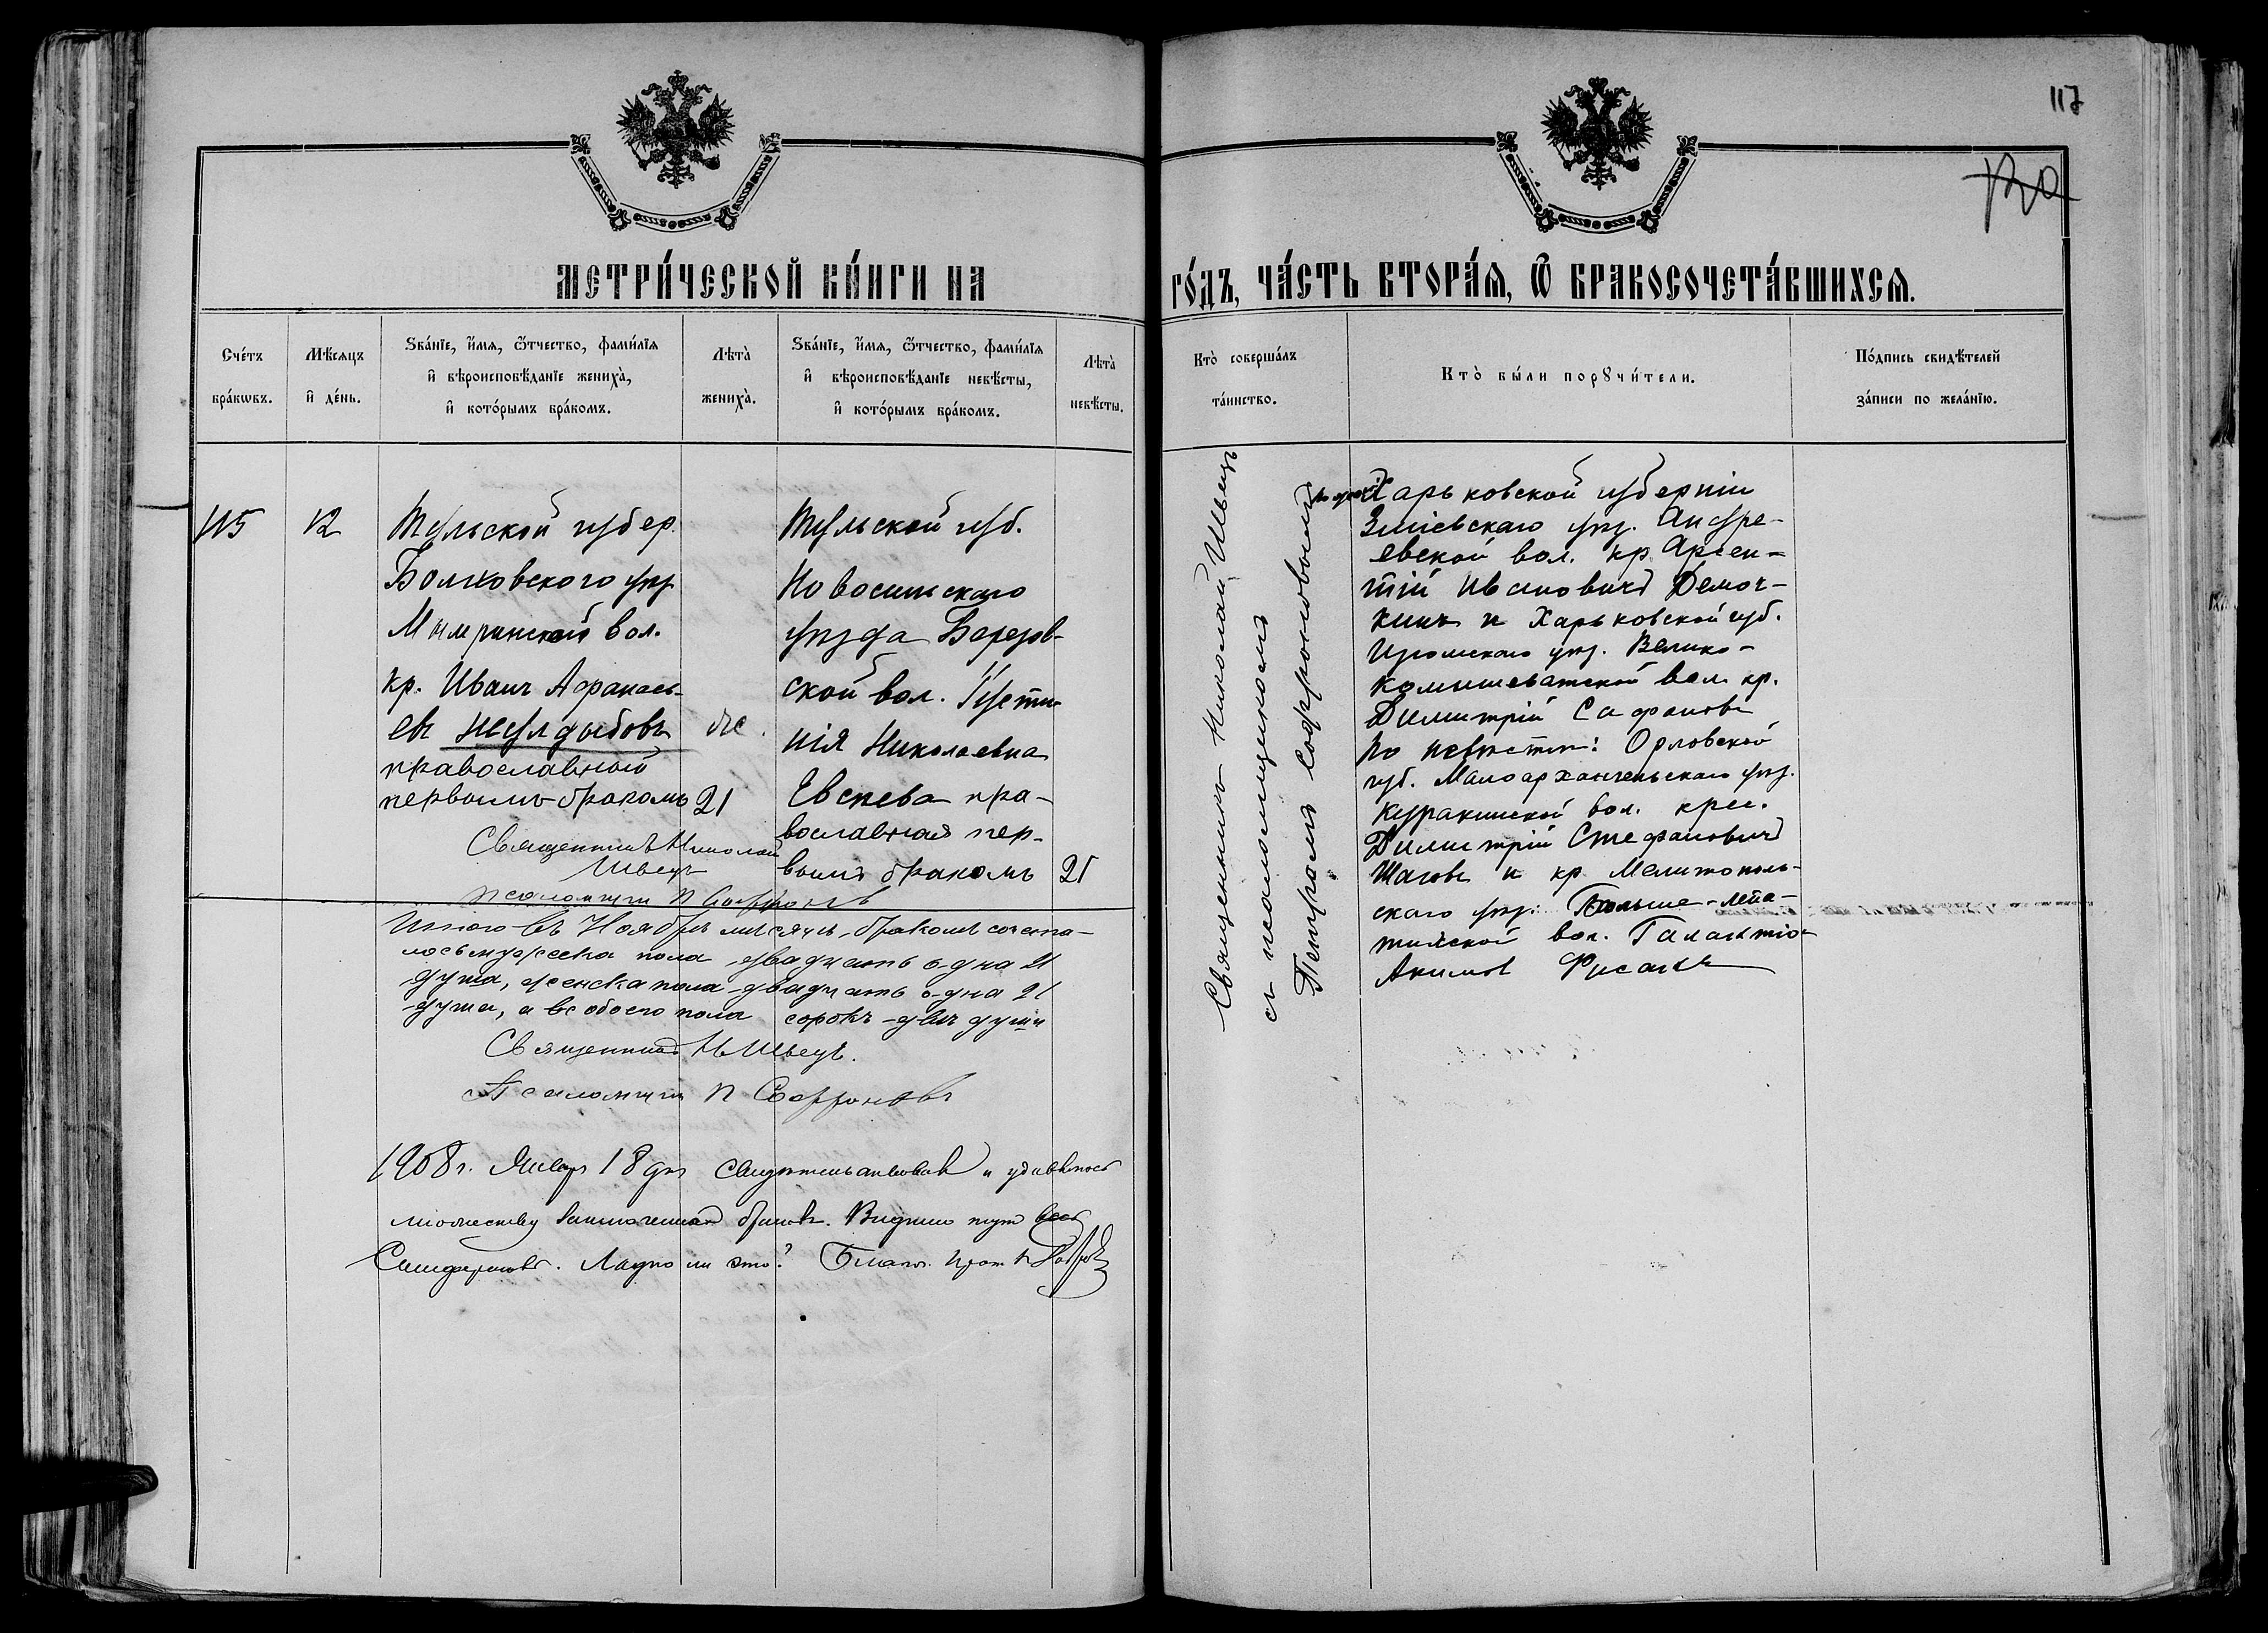 117
120
МЕТРИ́ЧЕСКОЙ КНИ́ГИ НА
ГО́ДЪ, ЧА́СТЬ ВТОРА́Я, Ѿ БРАКОСОЧЕТА́ВШИХСЯ.
Сче́тъ бра́кѡвъ.
Мѣ́сяцъ и҆ де́нь.
Ѕва́нїе, и҆́мя, ѻ҆́тчество, фами́лїя
и҆ вѣроисповѣ́данїе жениха̀,
и҆ кото́рымъ бра́комъ.
Лѣта̀
жениха̀.
Ѕва́нїе, и҆́мя, ѻ҆́тчество, фами́лїя
и҆ вѣроисповѣ́данїе невѣ́сты,
и҆ кото́рымъ бра́комъ.
Лѣта̀
невѣ́сты.
Кто̀ соверша́лъ
та́инство.
Кто̀ бы́ли порꙋчи́тели.
По́дпись свидѣ́телей
за́писи по жела́нїю.
115
12
Тульской губер.
Болховского уѣз.
вол.
кр. Иванъ Афанась-
евъ
православный
первымъ бракомъ
21
Священникъ Николай
Швецъ
Псаломщикъ П Софроновъ
Тульской губ.
Новосильскаго
уѣзда Березов-
ской вол. Густи-
нія Николаевна
Евсѣева пра-
вославная пер-
вымъ бракомъ
21
Священникъ Николай Швецъ
съ псаломщикомъ
Петромъ Софроновымъ
Харьковской губерніи
Зміевскаго уѣз. Андре-
евской вол. кр. Арсен-
тій Ивановичъ Демоч-
кинъ и Харьковской губ.
Изюмскаго уѣз. Велико-
комышеватской вол. кр.
Димитрій Сафоновъ
по невѣстѣ: Орловской
губ. Малоархангельскаго уѣз.
Куракинской вол. крес.
Димитрій Стефановичъ
Шаговъ и кр. Мелитополь-
скаго уѣз. Больше-Лепа-
тихской вол. Галактіо-
Акимов
Итого въ Ноябрѣ мѣсяцѣ, бракомъ сочета-
лось мужеска пола двадцать одна 21
душа, женска пола двадцать одна 21
душа, а вс обоего пола сорокъ двѣ души
Священникъ Н Швецъ.
Псаломщикъ П Софроновъ
1908 г. Январ 18 дня свидѣтельствовалъ и удивляюсь
множеству браковъ. Видимо тутъ весь
. Ладно ли это? Благоч. прот.